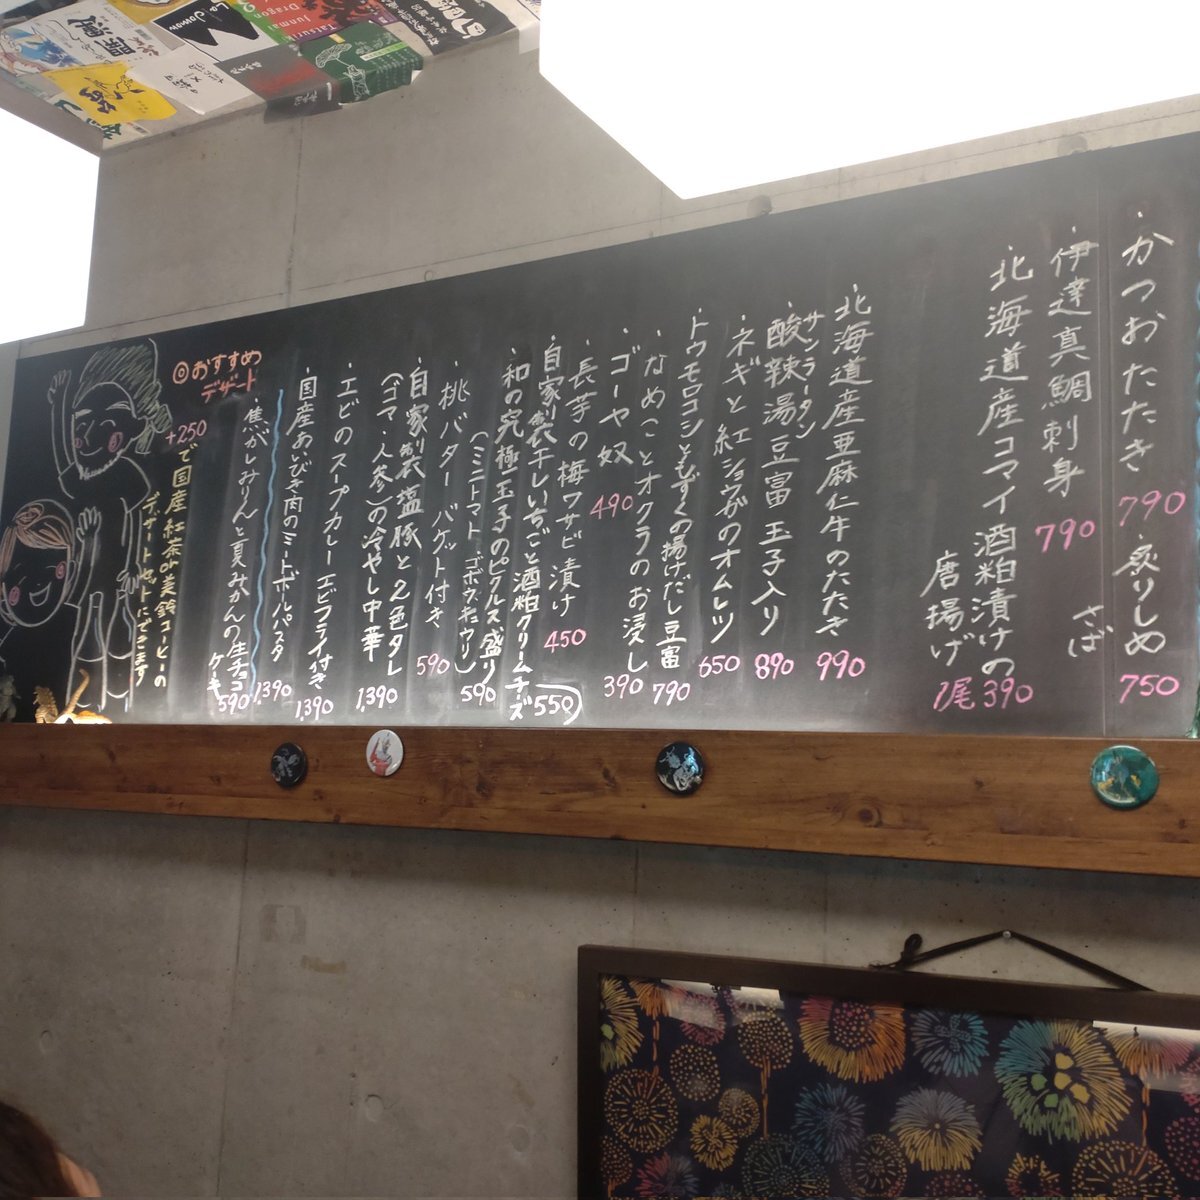 ・かつおたたき 790
・炙りしめさば 750
・伊達真鯛刺身 790
・北海道産コマイ酒粕漬けの
唐揚げ 1尾390
・北海道産亜麻仁牛のたたき 990
サンラータン
・酸辣湯豆富 玉子入り 890
・ネギと紅ショウガのオムレツ 650
・トウモロコシともずくの揚げだし豆富 790
・なめことオクラのお浸し 390
・ゴーヤ奴 490
・長芋の梅ワサビ漬け 450
・自家製干しいちごと酒粕クリームチーズ 550
・和の究極玉子のピクルス盛り 590
(ミニトマト ゴボウ キュウリ)
・桃バター バケット付き 590
・自家製塩豚と2色タレ
(ゴマ・人参)の冷やし中華 1,390
・エビのスープカレー エビフライ付き 1,390
・国産あいびき肉のミートボールパスタ 1,390
◎おすすめ
デザート
・焦がしみりんと夏みかんの生チョコ
ケーキ 590
+250で国産紅茶or美鈴コーヒーの
デザートセットにできます
La Jomon
Dragon
Junmai
Tatsuri